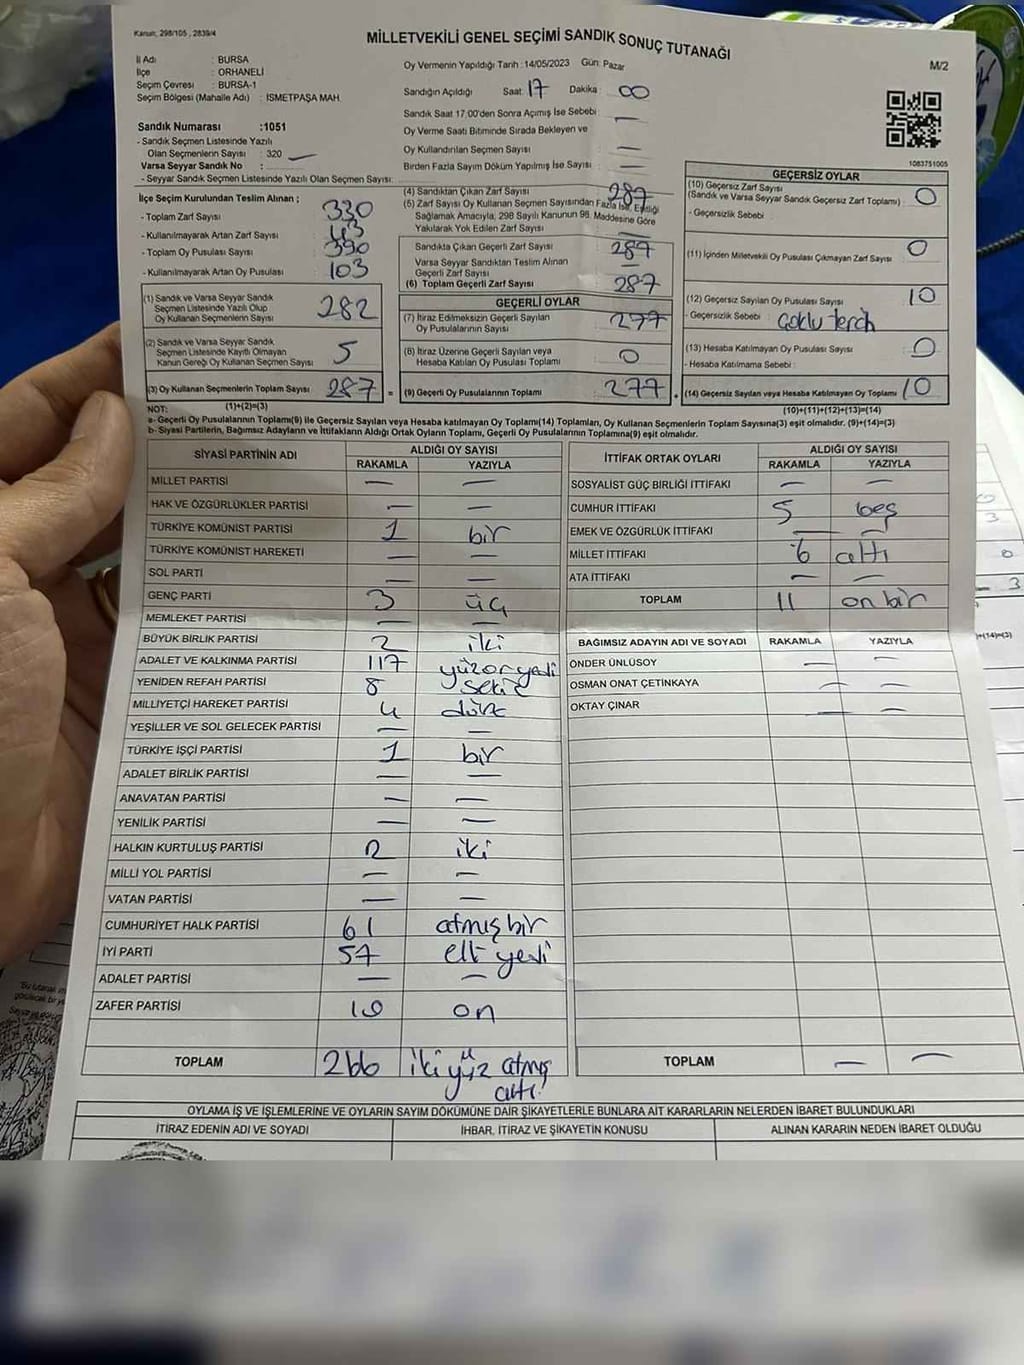 Kanun, 298/105 , 2839/4
MİLLETVEKİLİ GENEL SEÇİMİ SANDIK SONUÇ TUTANAĞI
M/2
İl Adı : BURSA
İlçe : ORHANELİ
Seçim Çevresi : BURSA-1
Seçim Bölgesi (Mahalle Adı) : İSMETPAŞA MAH.
Oy Vermenin Yapıldığı Tarih : 14/05/2023 Gün: Pazar
Sandığın Açıldığı Saat 17 Dakika : 00
Sandık Saat 17:00'den Sonra Açımış İse Sebebi : —
Oy Verme Saati Bitiminde Sırada Bekleyen ve
Oy Kullandırılan Seçmen Sayısı : —
Birden Fazla Sayım Döküm Yapılmış İse Sayısı : —
Sandık Numarası :1051
- Sandık Seçmen Listesinde Yazılı
Olan Seçmenlerin Sayısı : 320 —
Varsa Seyyar Sandık No :
- Seyyar Sandık Seçmen Listesinde Yazılı Olan Seçmen Sayısı:
1083751005
İlçe Seçim Kurulundan Teslim Alınan ;
- Toplam Zarf Sayısı : 330
- Kullanılmayarak Artan Zarf Sayısı : 43
- Toplam Oy Pusulası Sayısı : 390
- Kullanılmayarak Artan Oy Pusulası : 103
(1) Sandık ve Varsa Seyyar Sandık
Seçmen Listesinde Yazılı Olup
Oy Kullanan Seçmenlerin Sayısı : 282
(2) Sandık ve Varsa Seyyar Sandık
Seçmen Listesinde Kayıtlı Olmayan
Kanun Gereği Oy Kullanan Seçmen Sayısı : 5
(3) Oy Kullanan Seçmenlerin Toplam Sayısı : 287 =
(1)+(2)=(3)
(4) Sandıktan Çıkan Zarf Sayısı : 287
(5) Zarf Sayısı Oy Kullanan Seçmen Sayısından Fazla İse, Eşitliği
Sağlamak Amacıyla, 298 Sayılı Kanunun 98. Maddesine Göre
Yakılarak Yok Edilen Zarf Sayısı : —
Sandıkta Çıkan Geçerli Zarf Sayısı : 287
Varsa Seyyar Sandıktan Teslim Alınan
Geçerli Zarf Sayısı : —
(6) Toplam Geçerli Zarf Sayısı : 287
GEÇERLİ OYLAR
(7) İtiraz Edilmeksizin Geçerli Sayılan
Oy Pusulalarının Sayısı : 277
(8) İtiraz Üzerine Geçerli Sayılan veya
Hesaba Katılan Oy Pusulası Toplamı : 0
(9) Geçerli Oy Pusulalarının Toplamı : 277 +
GEÇERSİZ OYLAR
(10) Geçersiz Zarf Sayısı
(Sandık ve Varsa Seyyar Sandık Geçersiz Zarf Toplamı) : 0
- Geçersizlik Sebebi :
(11) İçinden Milletvekili Oy Pusulası Çıkmayan Zarf Sayısı : 0
(12) Geçersiz Sayılan Oy Pusulası Sayısı : 10
- Geçersizlik Sebebi : çoklu tercih
(13) Hesaba Katılmayan Oy Pusulası Sayısı : 0
- Hesaba Katılmama Sebebi :
(14) Geçersiz Sayılan veya Hesaba Katılmayan Oy Toplamı : 10
(10)+(11)+(12)+(13)=(14)
NOT:
a- Geçerli Oy Pusulalarının Toplamı(9) ile Geçersiz Sayılan veya Hesaba katılmayan Oy Toplamı(14) Toplamları, Oy Kullanan Seçmenlerin Toplam Sayısına(3) eşit olmalıdır. (9)+(14)=(3)
b- Siyasi Partilerin, Bağımsız Adayların ve İttifakların Aldığı Ortak Oyların Toplamı, Geçerli Oy Pusulalarının Toplamına(9) eşit olmalıdır.
SİYASİ PARTİNİN ADI ALDIĞI OY SAYISI
RAKAMLA YAZIYLA
MİLLET PARTİSİ — —
HAK VE ÖZGÜRLÜKLER PARTİSİ — —
TÜRKİYE KOMÜNİST PARTİSİ 1 bir
TÜRKİYE KOMÜNİST HAREKETİ — —
SOL PARTİ — —
GENÇ PARTİ 3 üç
MEMLEKET PARTİSİ — —
BÜYÜK BİRLİK PARTİSİ 2 iki
ADALET VE KALKINMA PARTİSİ 117 yüzonyedi
YENİDEN REFAH PARTİSİ 8 sekiz
MİLLİYETÇİ HAREKET PARTİSİ 4 dört
YEŞİLLER VE SOL GELECEK PARTİSİ — —
TÜRKİYE İŞÇİ PARTİSİ 1 bir
ADALET BİRLİK PARTİSİ — —
ANAVATAN PARTİSİ — —
YENİLİK PARTİSİ — —
HALKIN KURTULUŞ PARTİSİ 2 iki
MİLLİ YOL PARTİSİ — —
VATAN PARTİSİ — —
CUMHURİYET HALK PARTİSİ 61 atmış bir
İYİ PARTİ 57 elli yedi
ADALET PARTİSİ — —
ZAFER PARTİSİ 10 on
TOPLAM 266 iki yüz atmış
altı
İTTİFAK ORTAK OYLARI ALDIĞI OY SAYISI
RAKAMLA YAZIYLA
SOSYALİST GÜÇ BİRLİĞİ İTTİFAKI — —
CUMHUR İTTİFAKI 5 beş
EMEK VE ÖZGÜRLÜK İTTİFAKI — —
MİLLET İTTİFAKI 6 altı
ATA İTTİFAKI — —
TOPLAM 11 on bir
BAĞIMSIZ ADAYIN ADI VE SOYADI RAKAMLA YAZIYLA
ÖNDER ÜNLÜSOY — —
OSMAN ONAT ÇETİNKAYA — —
OKTAY ÇINAR — —
TOPLAM — —
OYLAMA İŞ VE İŞLEMLERİNE VE OYLARIN SAYIM DÖKÜMÜNE DAİR ŞİKAYETLERLE BUNLARA AİT KARARLARIN NELERDEN İBARET BULUNDUKLARI
İTİRAZ EDENİN ADI VE SOYADI İHBAR, İTİRAZ VE ŞİKAYETİN KONUSU ALINAN KARARIN NEDEN İBARET OLDUĞU